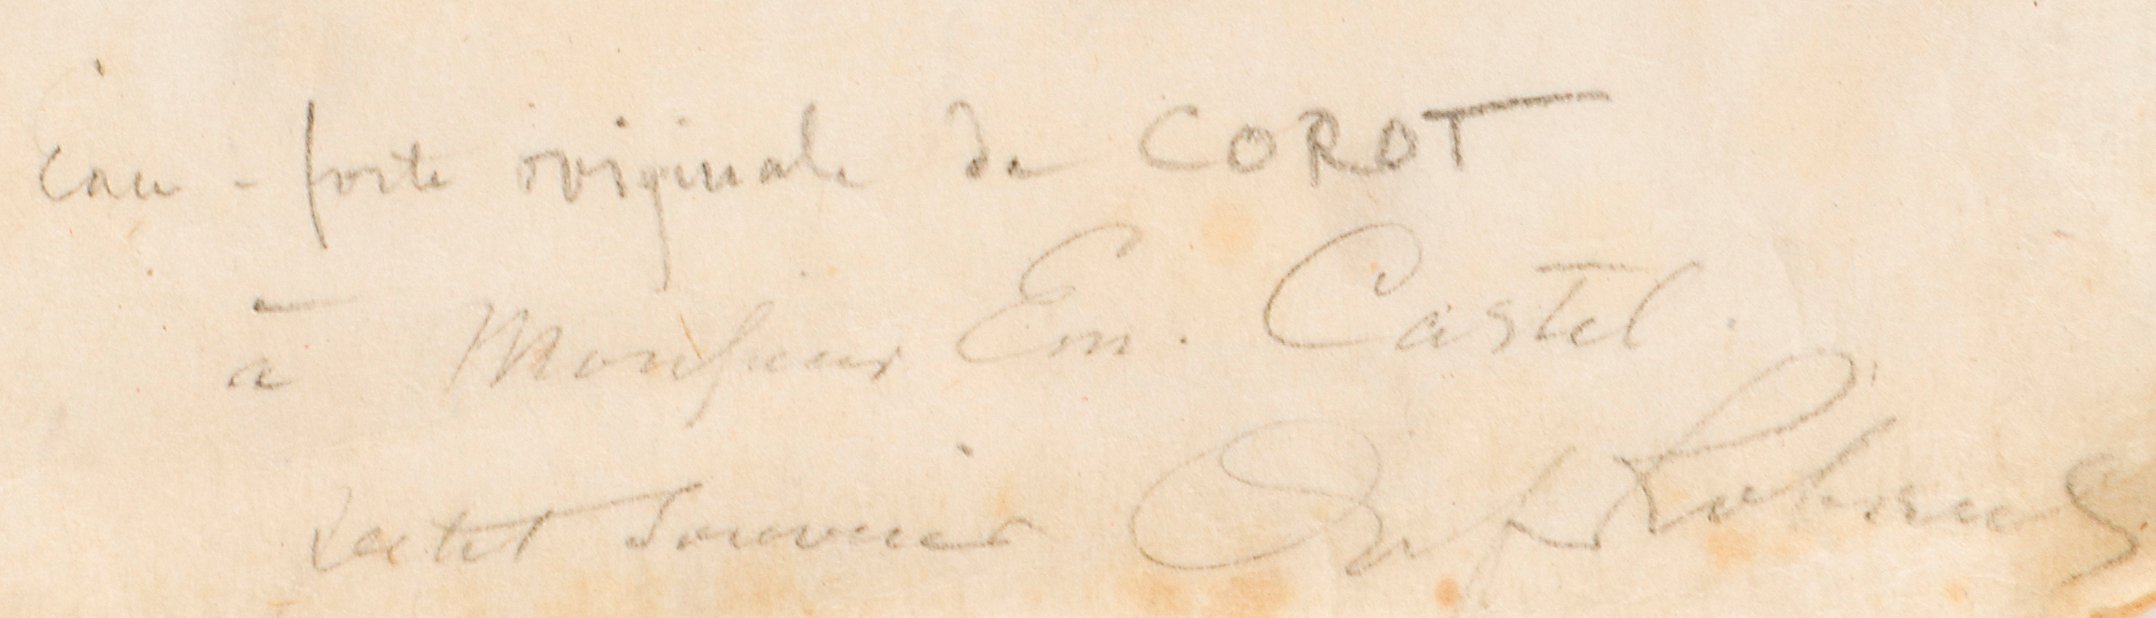 Eau-forte originale de COROT
à Monsieur Em. Castel.
souvenir Alf Robaut